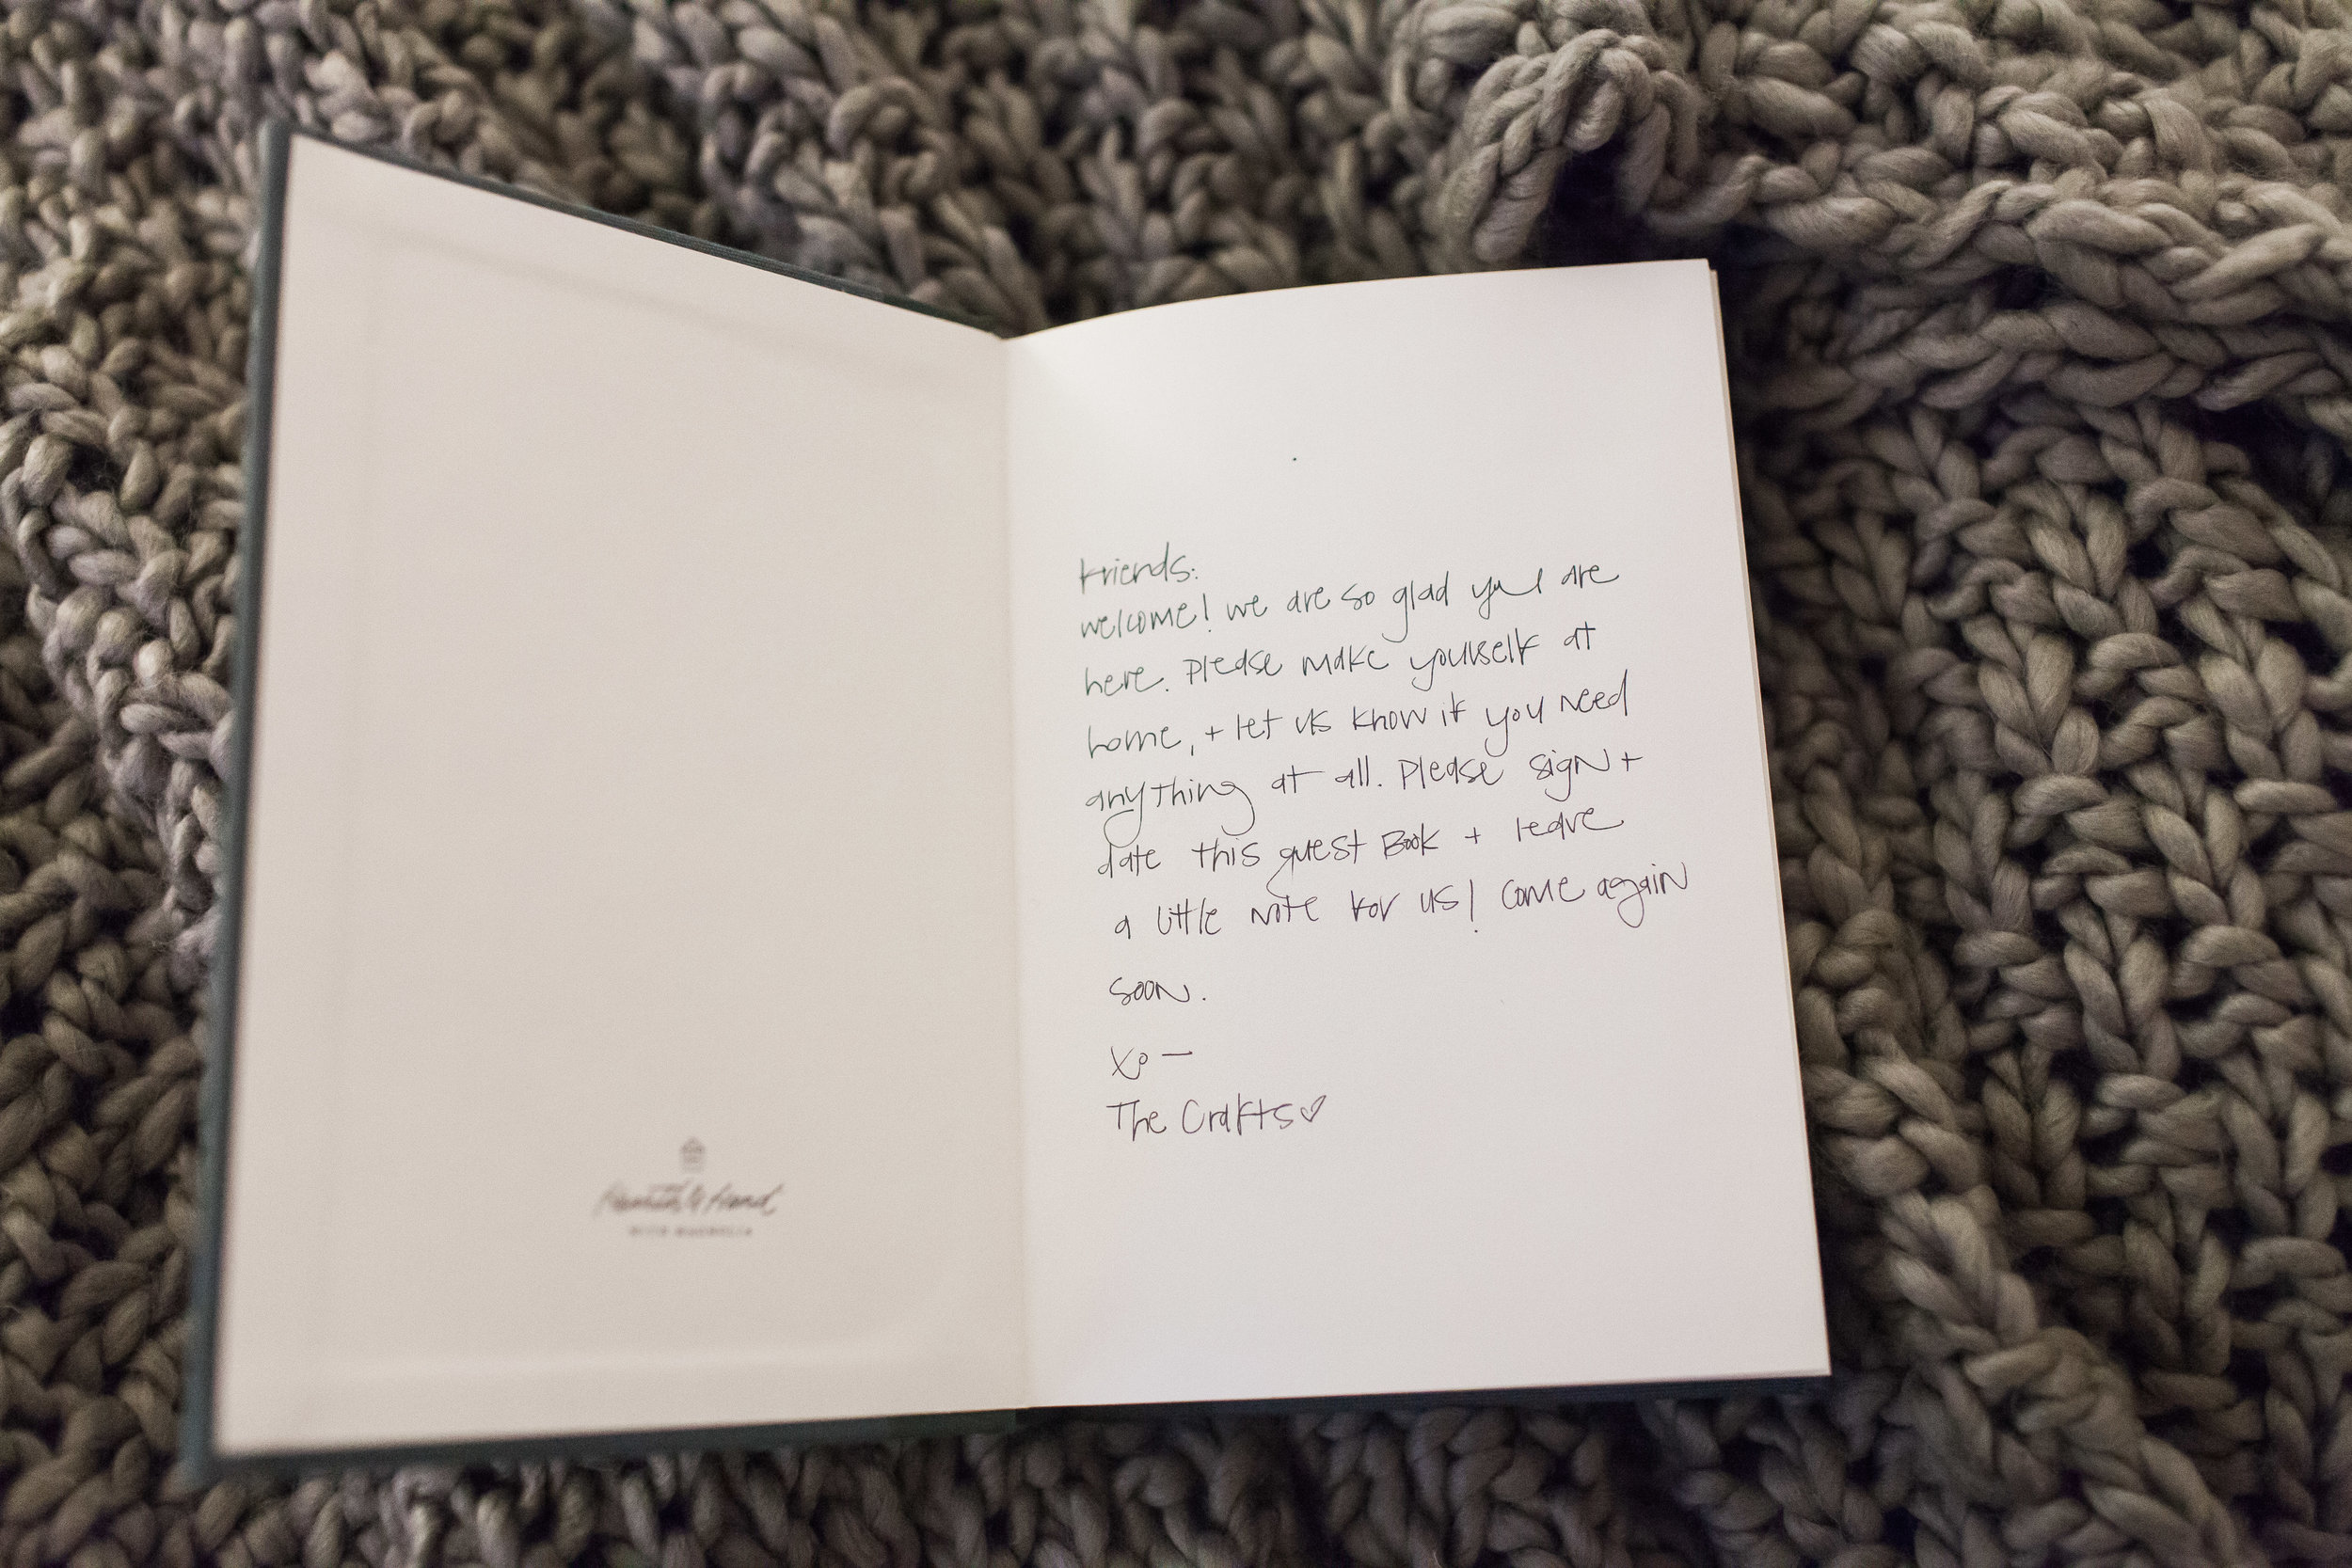 Hearth & Hand
WITH MAGNOLIA
Friends:
welcome! we are so glad you are
here. Please make yourself at
home, + let us know if you need
anything at all. Please sign +
date this guest Book + leave
a little note for us! Come again
soon.
xo —
The Crafts♡